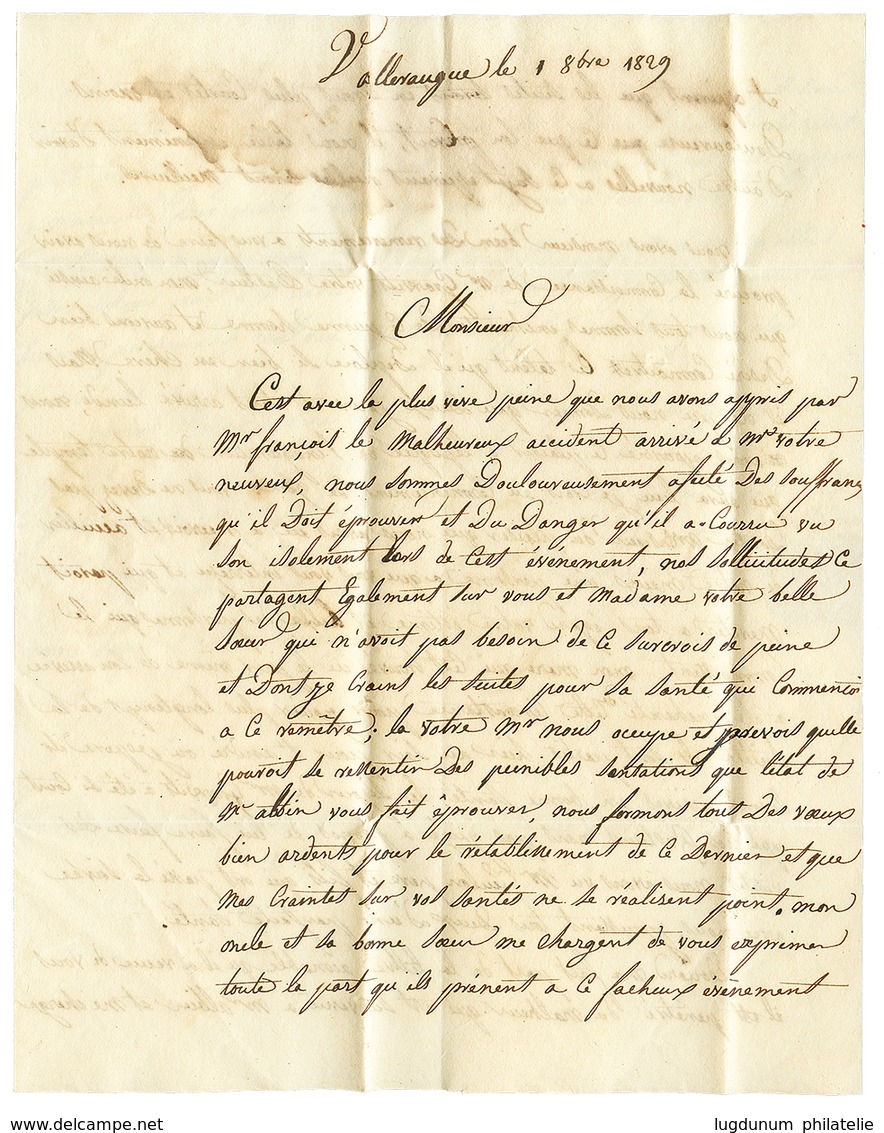 Valleraugue le 1 8bre 1829
Monsieur
C'est avec la plus vive peine que nous avons appris par
Mr françois le Malheureux accident arrivé a Mr votre
neuveux, nous sommes Douloureusement afecté Des souffrances
qu'il Doit éprouver et Du Danger qu'il a Courru vu
son isolement lors de Cest événement, nos sollicitudes Ce
partagent Egalement sur vous et Madame votre belle
sœur qui n'avoit pas besoin de Ce surcrois de peine
et Dont je Crains les suites pour sa santé qui Commençoi
a Ce remêtre; la votre Mr nous occupe et prevois qu'elle
pouroit se ressentir Des peinibles sensations que l'état de
Mr albin vous fait éprouver, nous formons tous Des vœux
bien ardents pour le rétablissement de Ce Dernier et que
Mes Craintes sur vos santés ne se réalisent point. mon
oncle et sa bonne sœur me chargent de vous exprimer
toute la part qu'ils prénent a Ce facheux évènement
delcampe.net
lugdunum philatelie